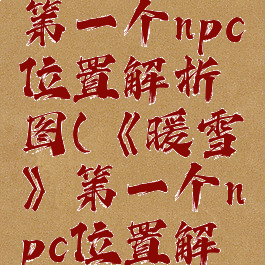 第一个npc
位置解析
图(《暖雪
》第一个n
pc位置解